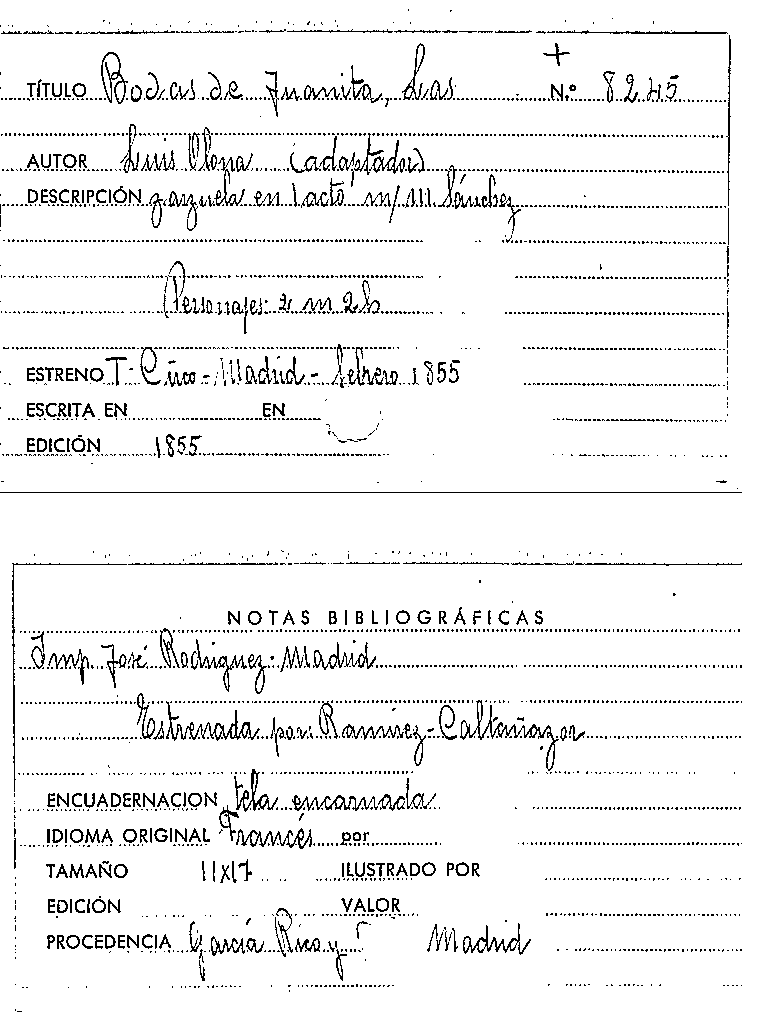 +
TÍTULO Bodas de Juanita, Las N.º 8245
AUTOR Luis Olona (adaptador)
DESCRIPCIÓN zarzuela en 1 acto m/ M. Sánchez
Personajes: 2 m 2 h
ESTRENO T. Circo - Madrid - febrero 1855
ESCRITA EN EN
EDICIÓN 1855
NOTAS BIBLIOGRÁFICAS
Imp. José Rodriguez - Madrid
Estrenada por: Ramírez - Caltañazor
ENCUADERNACION tela encarnada
IDIOMA ORIGINAL Francés por
TAMAÑO 11x17 ILUSTRADO POR
EDICIÓN VALOR
PROCEDENCIA García Rico y Madrid